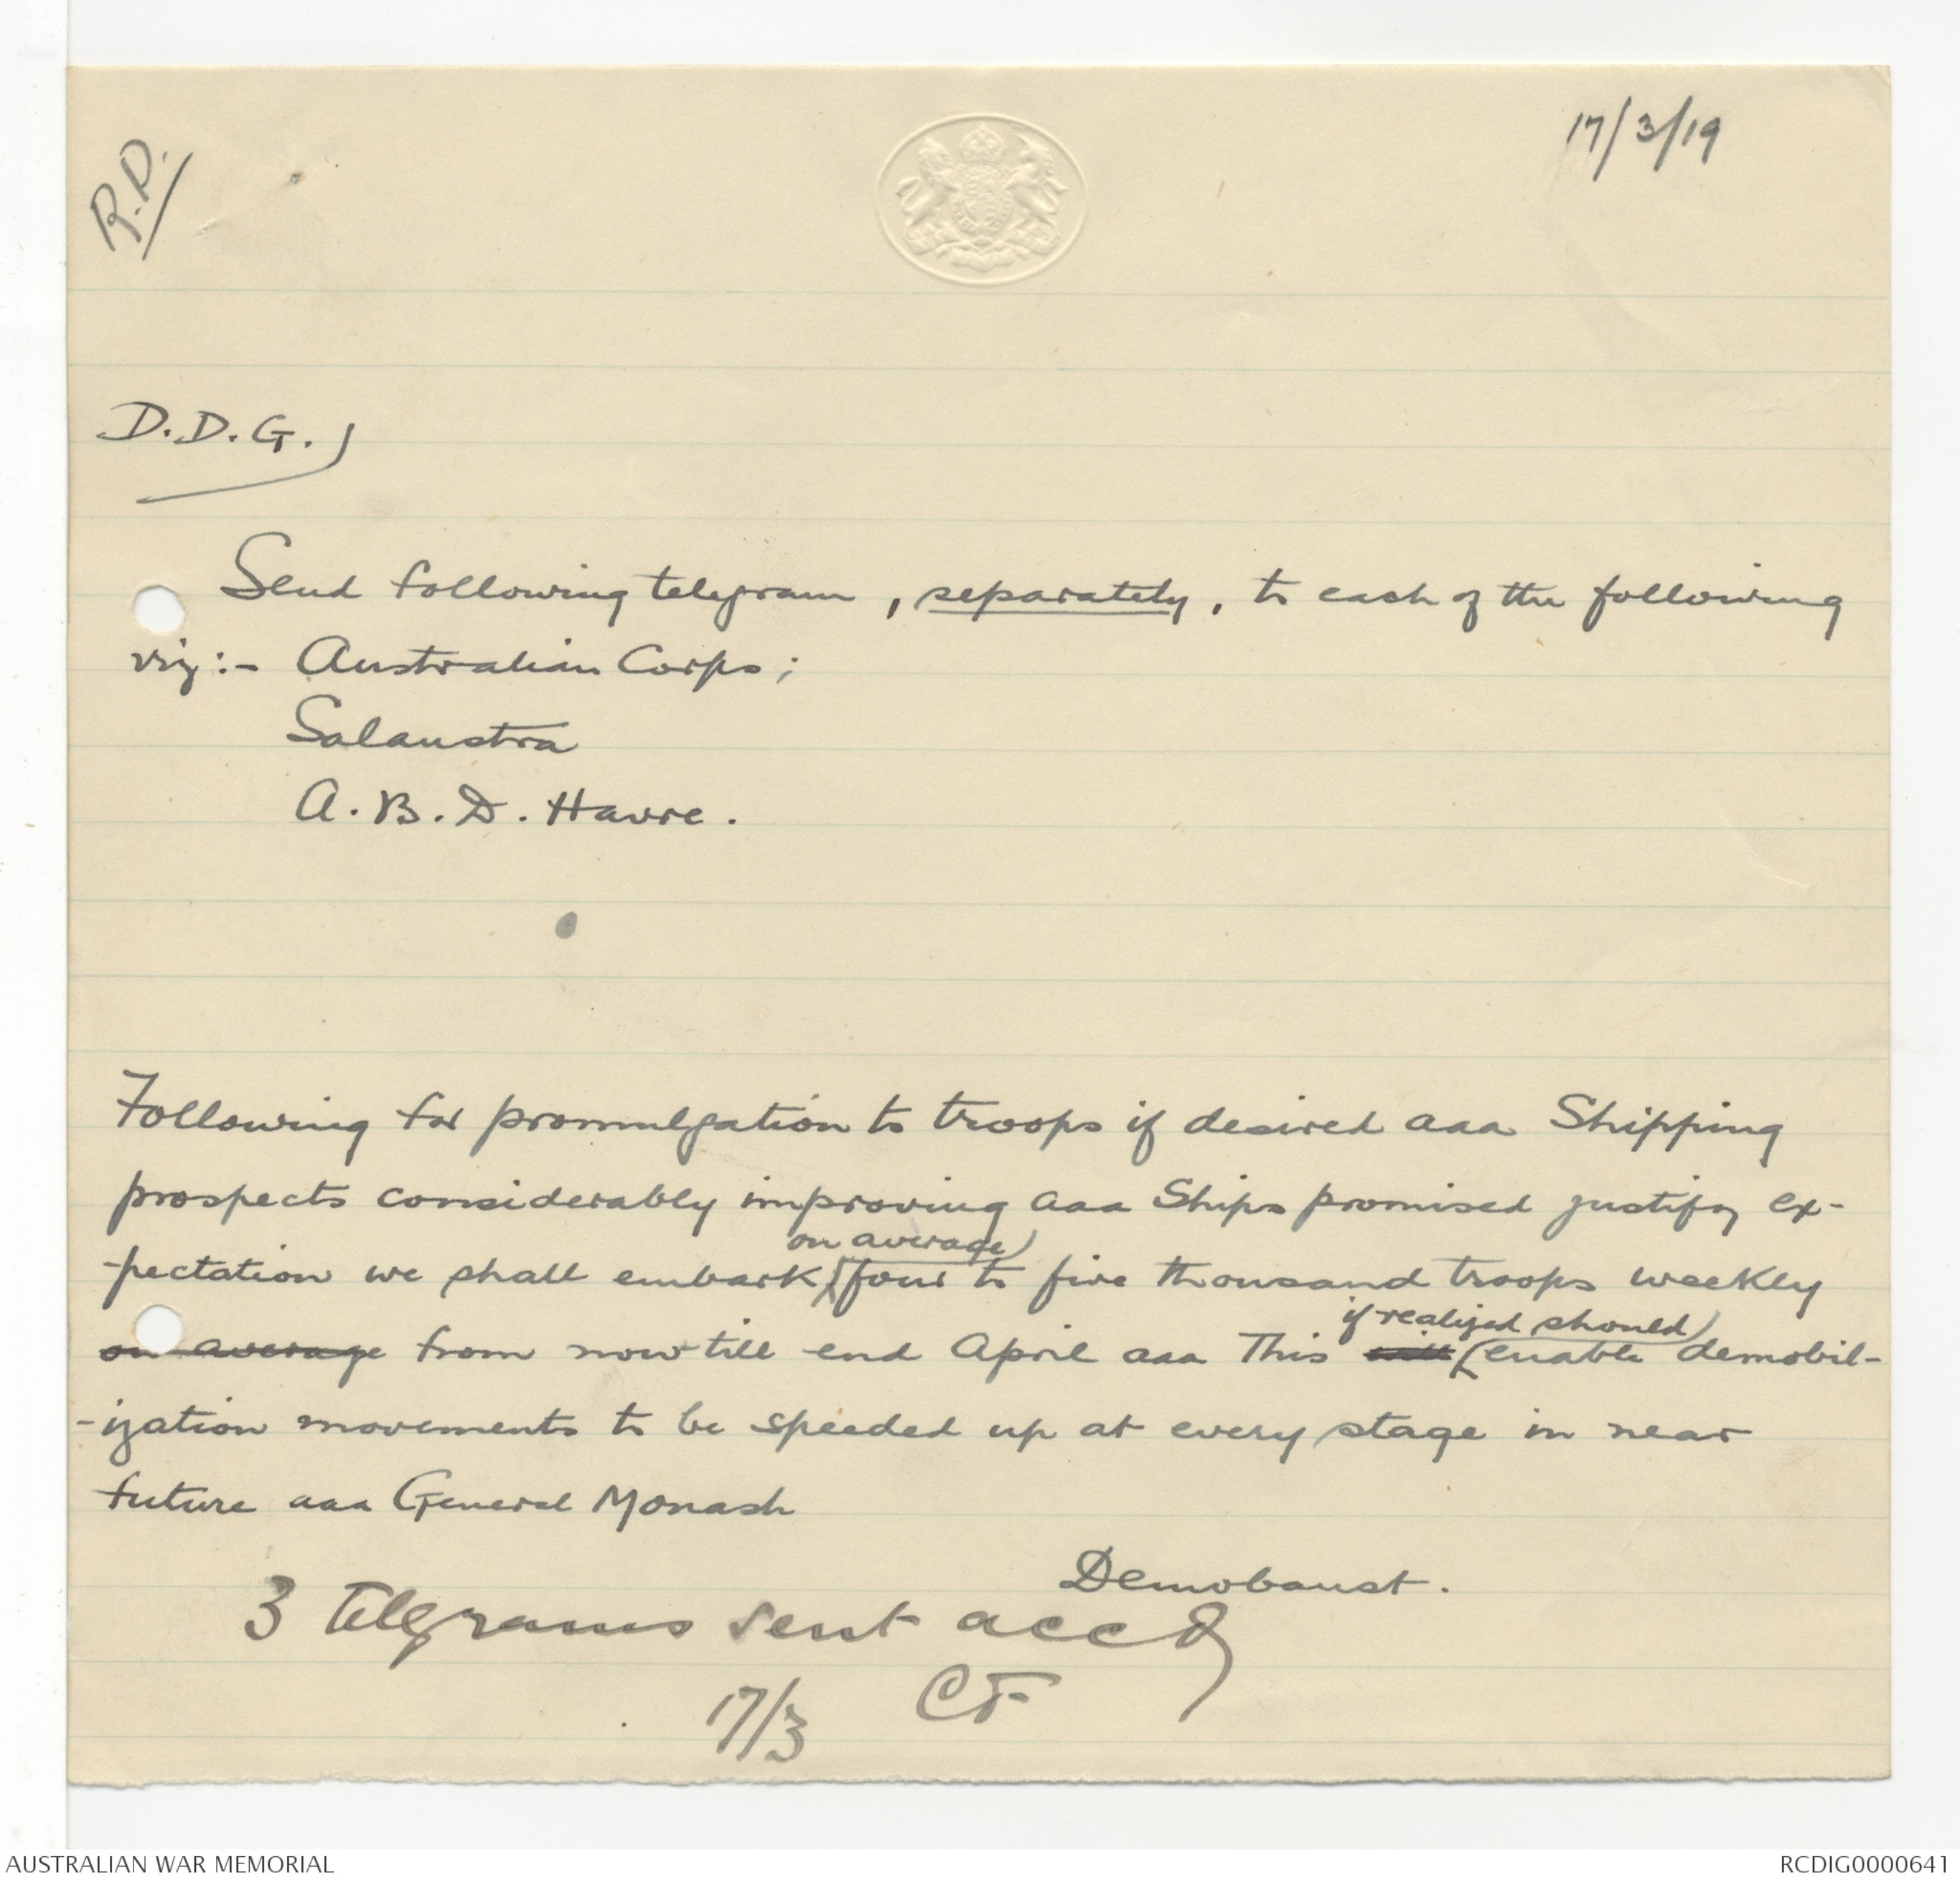 R.P.
17/3/19
D.D.G.
Send following telegram, separately, to each of the following
viz:- Australian Corps;
Salaustra
A.B.D. Havre.
Following for promulgation to troops if desired aaa Shipping
prospects considerably improving aaa Ships promised justify ex-
on average
-pectation we shall embark four to five thousand troops weekly
on average from now till end April aaa This will enable demobil-
if realized should
-ization movements to be speeded up at every stage in near
future aaa General Monash
Demobaust.
3 telegrams sent accdg
17/3 CF
AUSTRALIAN WAR MEMORIAL
RCDIG0000641